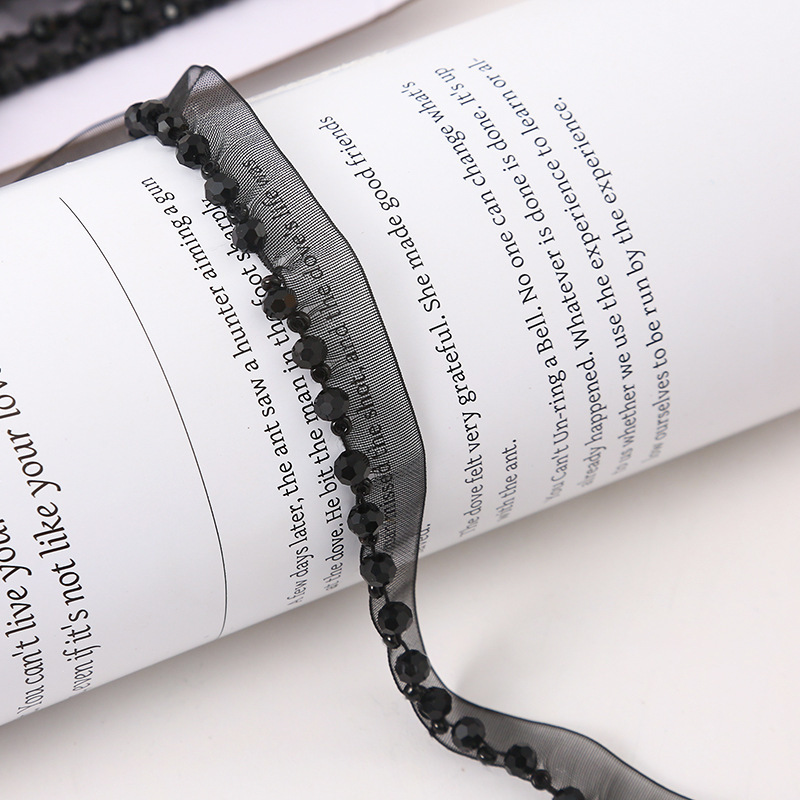 You can't live your
even if it's not like your love
A few days later, the ant saw a hunter aiming a gun
at the dove. He bit the man in the foot sharply
missed the shot, and the dove's life was
saved.
The dove felt very grateful. She made good friends
with the ant.
You Can't Un-ring a Bell. No one can change what's
already happened. Whatever is done is done. It's up
to us whether we use the experience to learn or al-
low ourselves to be run by the experience.